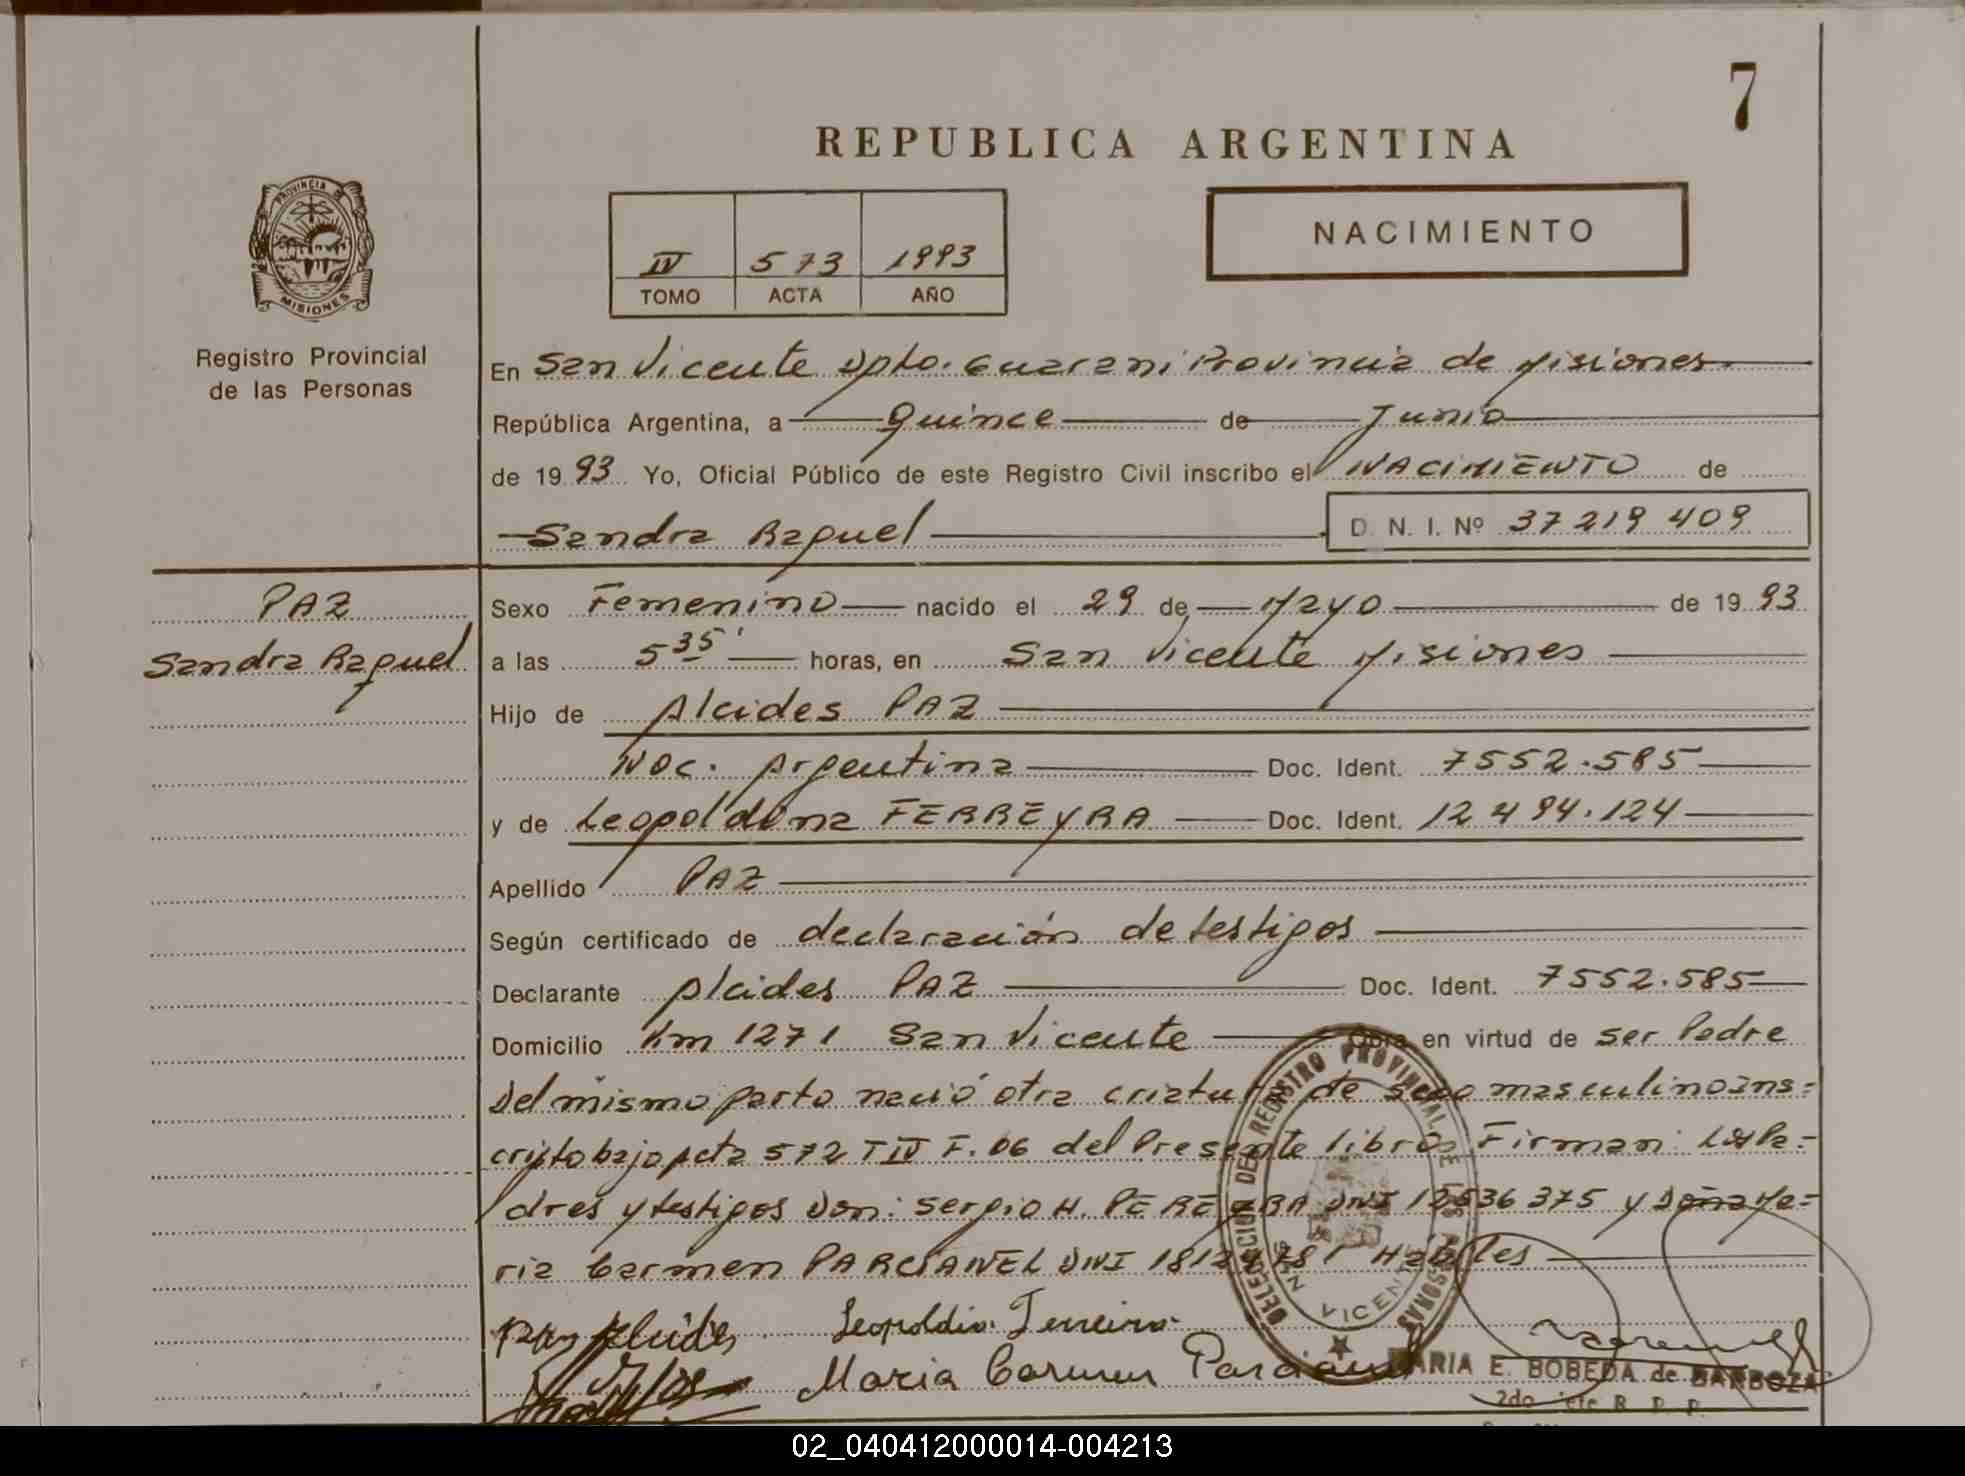 7
REPUBLICA ARGENTINA
PROVINCIA DE
MISIONES
Registro Provincial
de las Personas
IV 573 1993
TOMO ACTA AÑO
NACIMIENTO
En San Vicente Dpto. Guarani Provincia de Misiones
República Argentina, a Quince de Junio
de 1993 Yo, Oficial Público de este Registro Civil inscribo el NACIMIENTO de
Sandra Raquel D. N. I. Nº 37 219 409
PAZ
Sandra Raquel
Sexo Femenino nacido el 29 de Mayo de 1993
a las 5 35' horas, en San Vicente Misiones
Hijo de Alcides PAZ
Nac. Argentina Doc. Ident. 7552.585
y de Leopoldina FERREYRA Doc. Ident. 12 494.124
Apellido PAZ
Según certificado de declaración de testigos
Declarante Alcides PAZ Doc. Ident. 7552.585
Domicilio Km 1271 San Vicente Obra en virtud de ser Padre
Del mismo parto nació otra criatura de sexo masculino ins=
cripto bajo Acta 572 T IV F. 06 del Presente libro Firman: los Pa=
dres y testigos Don: Sergio H. PEREYRA DNI 12536 375 y Doña Ma=
ria Carmen PARCIANEL DNI Habiles
Paz Alcides Leopoldina Ferreira
Maria Carmen Parcianel
DELEGACION DEL REGISTRO PROVINCIAL DE LAS PERSONAS
SAN VICENTE
MARIA E. BOBEDA de BARBOZA
2do Jefe R. P. P.
02_040412000014-004213